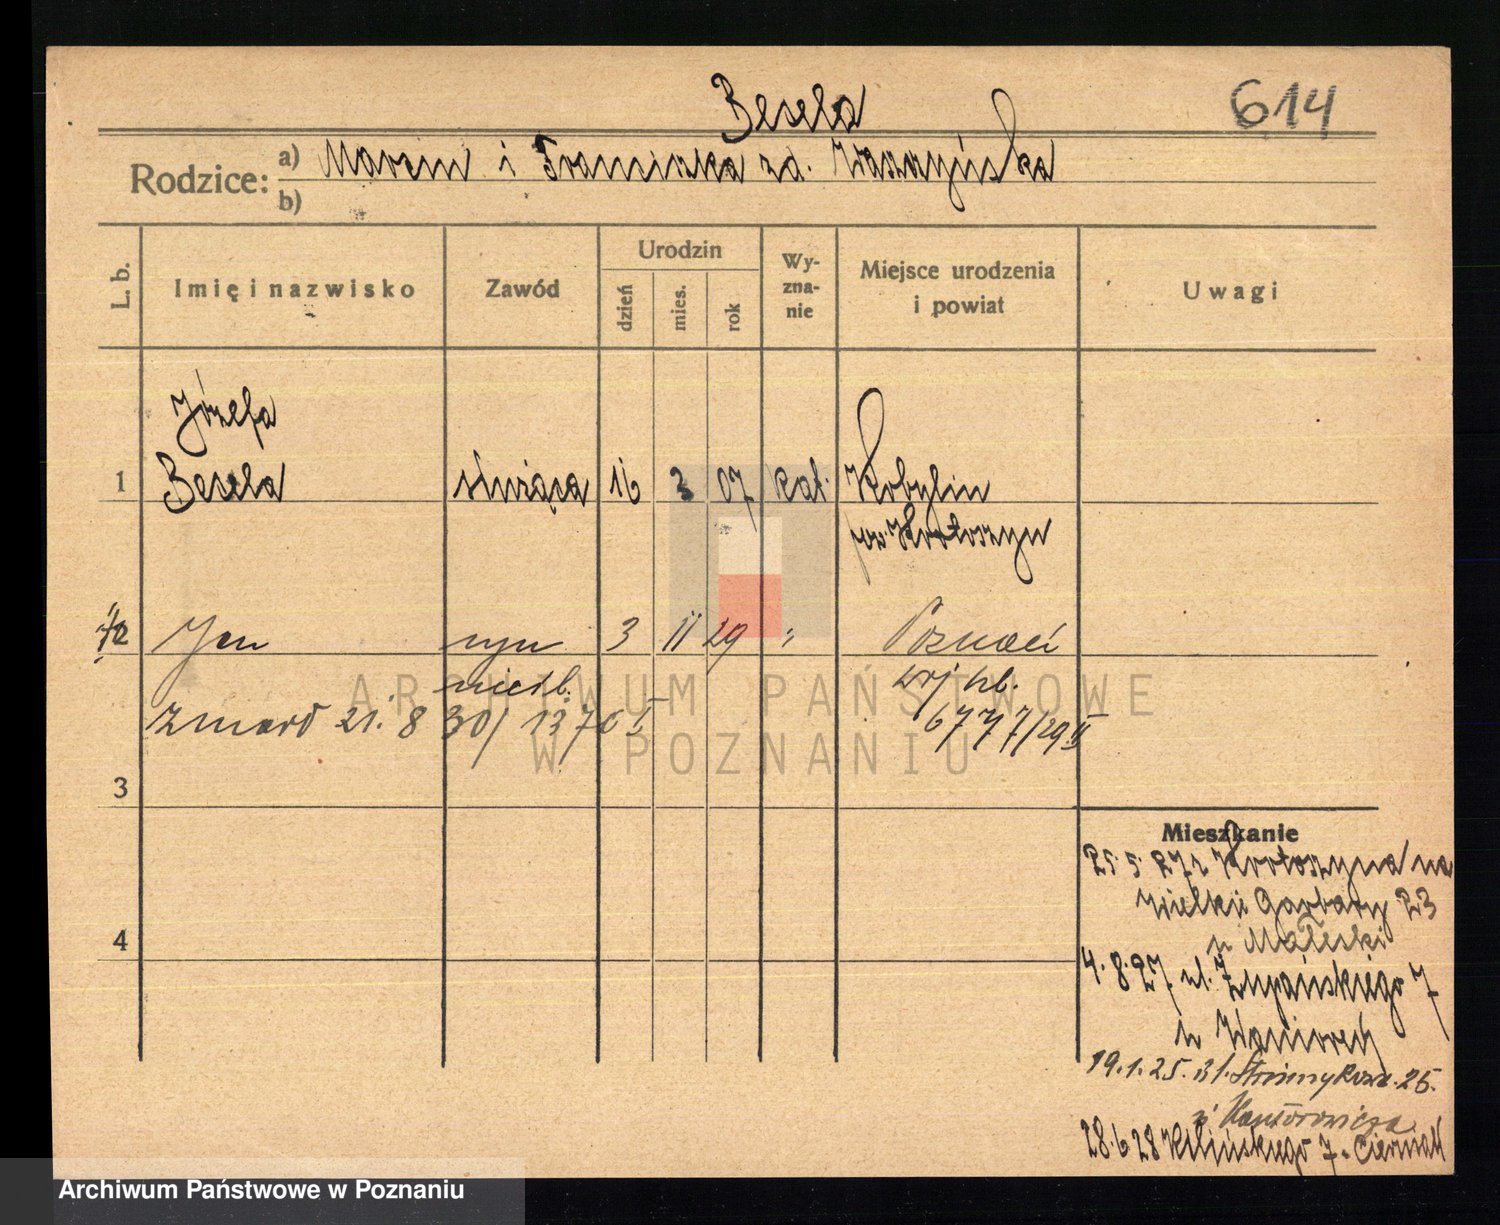 Besela
614
Rodzice: a) Marcin i Franciszka zd. Waszyńska
b)
L. b. Imię i nazwisko Zawód Urodzin dzień mies. rok Wy-zna-nie Miejsce urodzenia i powiat Uwagi
Józefa
1 Besela służąca 16 3 07 kat. Kobylin
pow. Krotoszyn
2 Jan syn 3 11 29 " Poznań
nieśl.
zmarł 21. 8 30/ 1376 I 6777/29 II
3
Mieszkanie
25. 5. 27 z Krotoszyna na
Wielkie Garbary 23
u Małecki
4
4. 8. 27 ul. Żupańskiego 7
u
19. 1. 25.
u Kantorowicza
28. 6 28 Kilińskiego 7 - Cierniak
ARCHIWUM PAŃSTWOWE
W POZNANIU
Archiwum Państwowe w Poznaniu